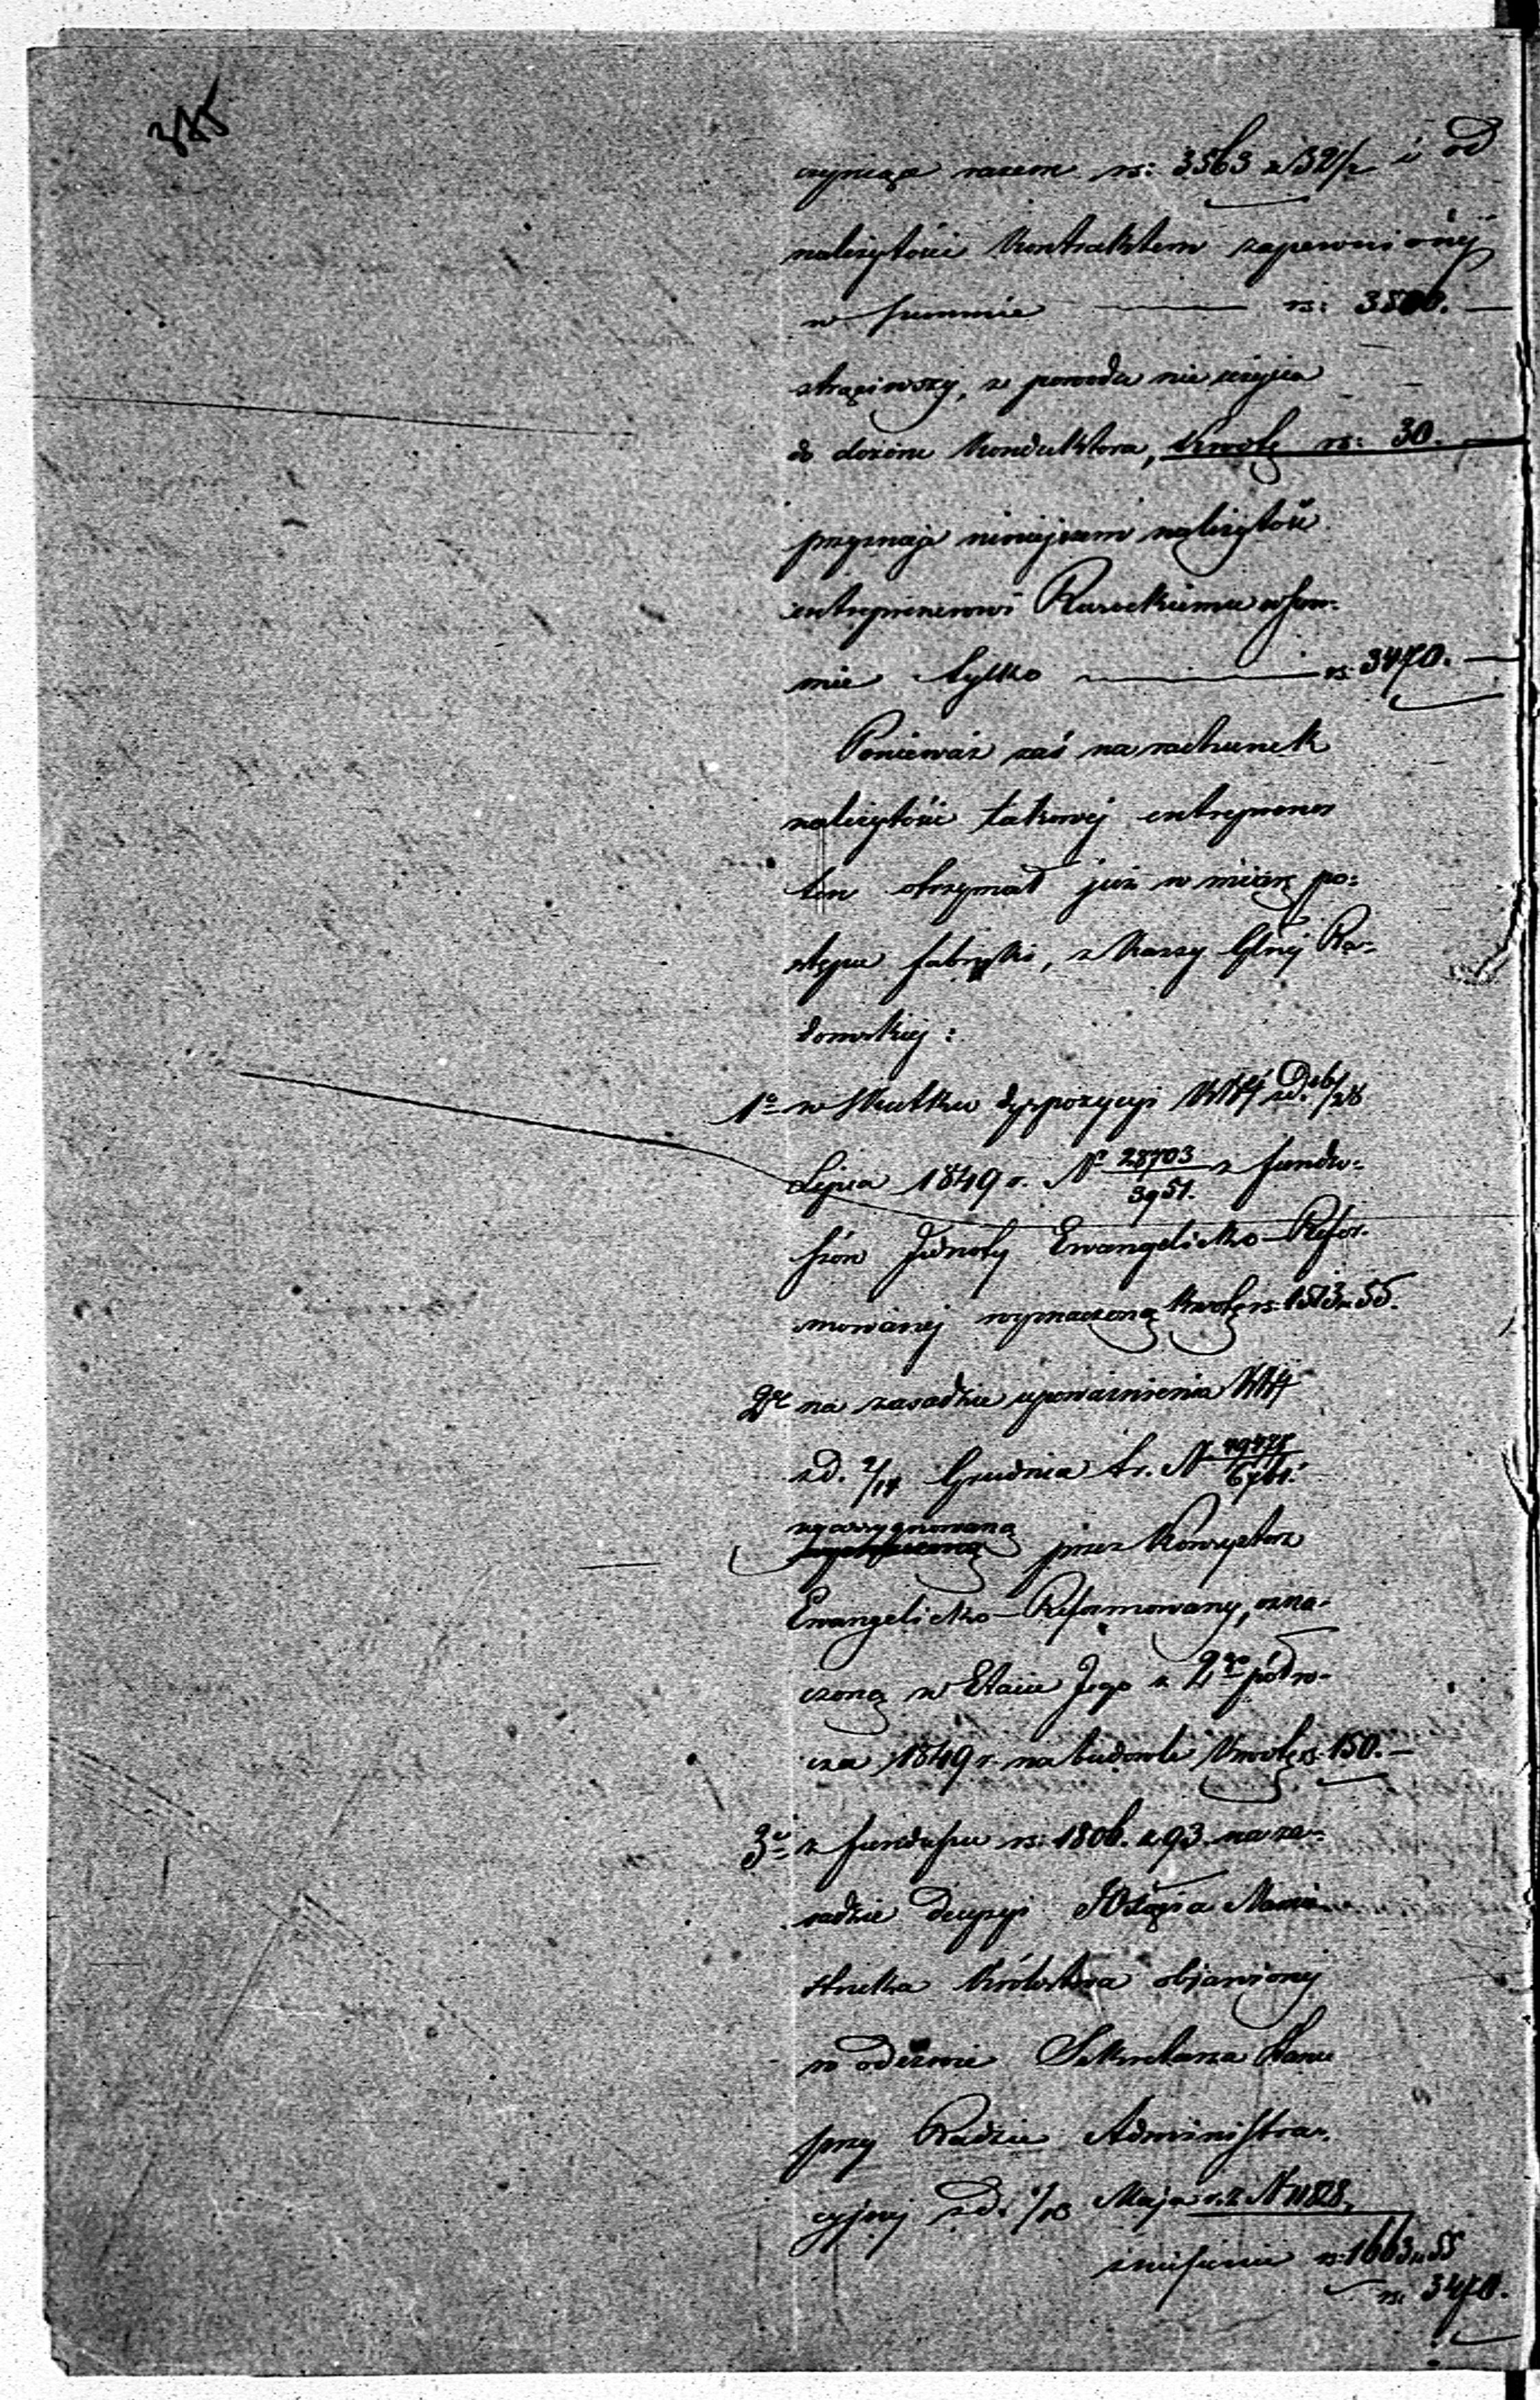 325
czyniące razem rs: 3563 k 32 1/2 i od
należytości Kontraktem zapewnionej
w summie — rs: 3500. —
strąciwszy, z powodu nie użycia
do dozoru Konduktora, Kwotę rs: 30. —
przyznaje niniejszem należytość
entreprenerowi w sum-
mie tylko — rs. 3470. —
Ponieważ zaś na rachunek
należytości takowej entreprener
ten otrzymał już w miarę po-
stępu fabryki, z Kassy Głnej Ra-
domskiej:
1o w skutku dyspozycyi KRSW z d. 16/28
Lipca 1849 r. No 28703/3951. z fundu-
szów Jednoty Ewangelicko-Refor-
mowanej wyznaczoną Kwotę rs. 1513 k 55.
2e na zasadzie upoważnienia KRSW
z d. 2/14 Grudnia t. r. No
zaassygnowaną przez Konsystorz
Ewangelicko-Reformowany, ozna-
czoną w Etacie Jego z 2go półro-
cza 1849 r. na budowle Kwotę rs. 150. —
3e z funduszu rs: 1806. k 93. na za-
sadzie decyzyi JO Xięcia Namie-
stnika Królestwa objawionej
w odezwie Sekretarza Stanu
przy Radzie Administra-
cyjnej z d. 6/18 Maja r. z. N 11828,
zniesienie rs: 1663 k 55
rs. 3470.